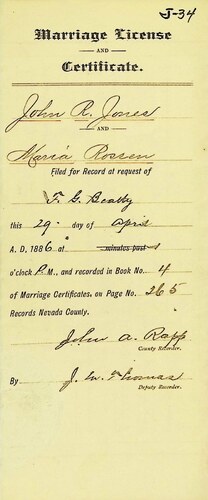 J-34
Marriage License
AND
Certificate.
John R. Jones
AND
Maria Rossen
Filed for Record at request of
F. G. Beatty
this 29 day of April
A. D. 1886 at minutes past 1
o'clock P. M., and recorded in Book No. 4
of Marriage Certificates, on Page No. 265
Records Nevada County.
John A. Rapp
County Recorder.
By J. W. Thomas
Deputy Recorder.